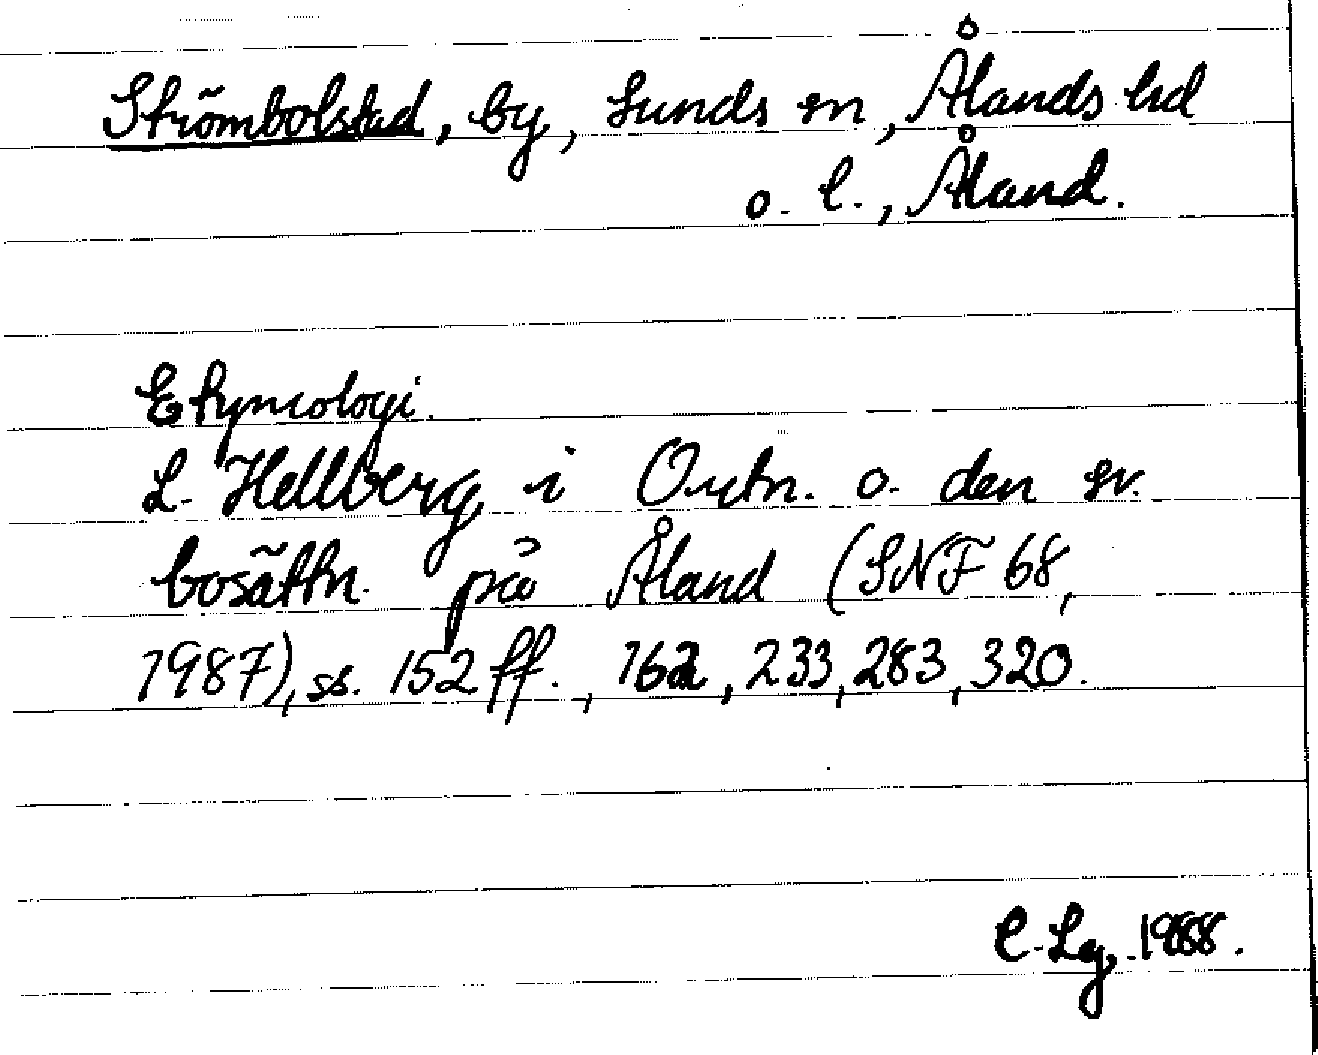 Strömbolstad, by, Sunds sn, Ålands hd
o. l., Åland.
Etymologi.
L. Hellberg i Ortn. o. den sv.
bosättn. på Åland (SNF 68,
1987), ss. 152 ff., 162, 233, 283, 320.
C. Lg, 1988.